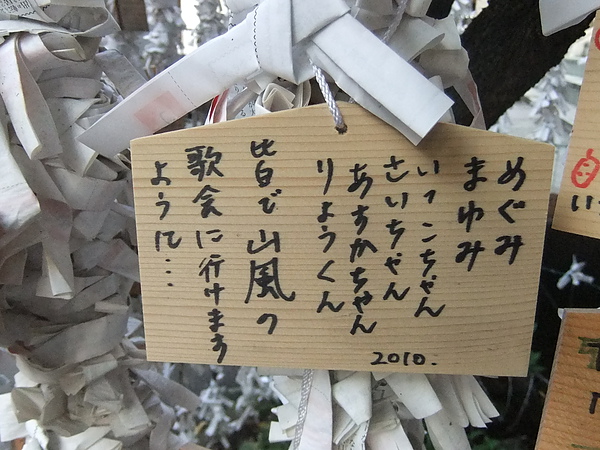 めぐみ
まゆみ
いっこちゃん
さいちゃん
あすかちゃん
りょうくん
皆で山風の
歌会に行けます
ように…
2010.